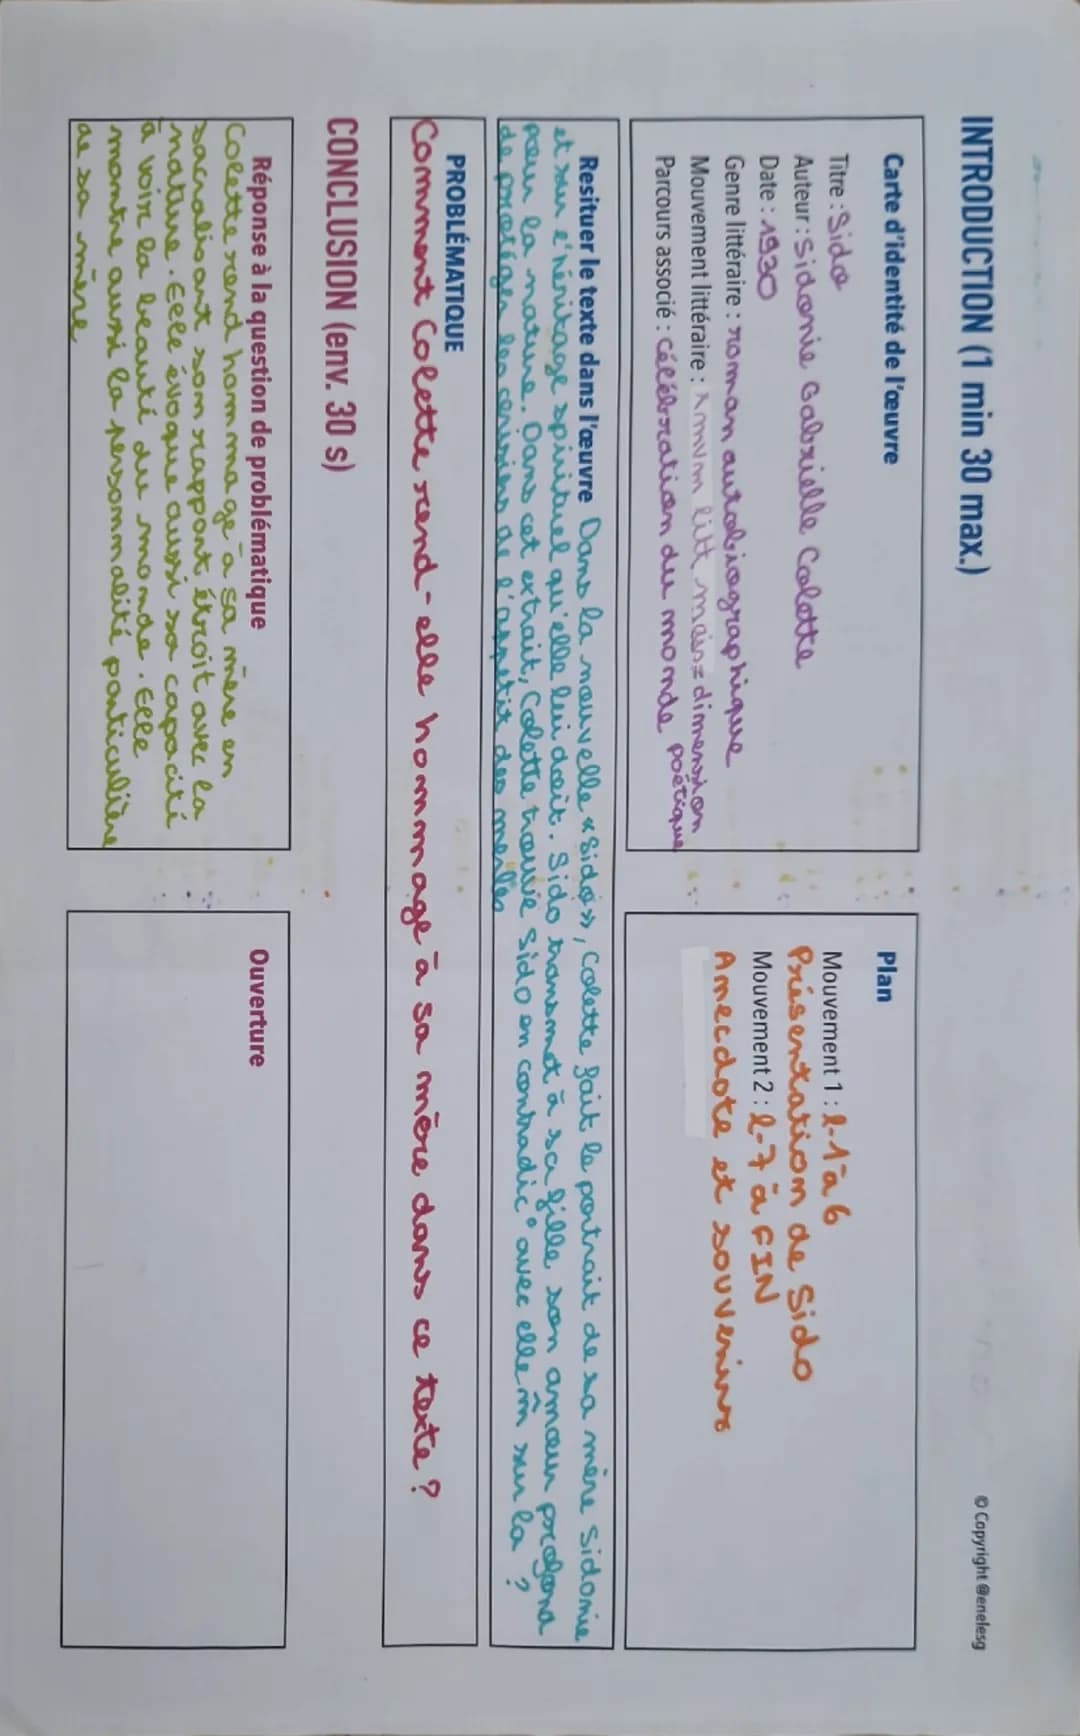 INTRODUCTION (1 min 30 max.)
© Copyright @enelesg
Carte d'identité de l'œuvre
Titre : Sido
Auteur : Sidonie Gabrielle Colette
Date : 1930
Genre littéraire : roman autobiographique
Mouvement littéraire : litt mais = dimension
poétique
Parcours associé : célébration du monde
Plan
Mouvement 1 : l-1 à 6
Présentation de Sido
Mouvement 2 : l-7 à FIN
Anecdote et souvenirs
Resituer le texte dans l'œuvre Dans la nouvelle «Sido», Colette fait le portrait de sa mère Sidonie
et sur l'héritage spirituel qu'elle lui doit. Sido transmet à sa fille son amour profond
pour la nature. Dans cet extrait, Colette trouve Sido en contradic° avec elle m̂ sur la ?
de protéger les cerisiers de l'appétit des merles
PROBLÉMATIQUE
Comment Colette rend-elle hommage à sa mère dans ce texte ?
CONCLUSION (env. 30 s)
Réponse à la question de problématique
Colette rend hommage à sa mère en
sacralisant son rapport étroit avec la
nature. Elle évoque aussi sa capacité
à voir la beauté du monde. Elle
montre aussi la personnalité particulière
de sa mère
Ouverture